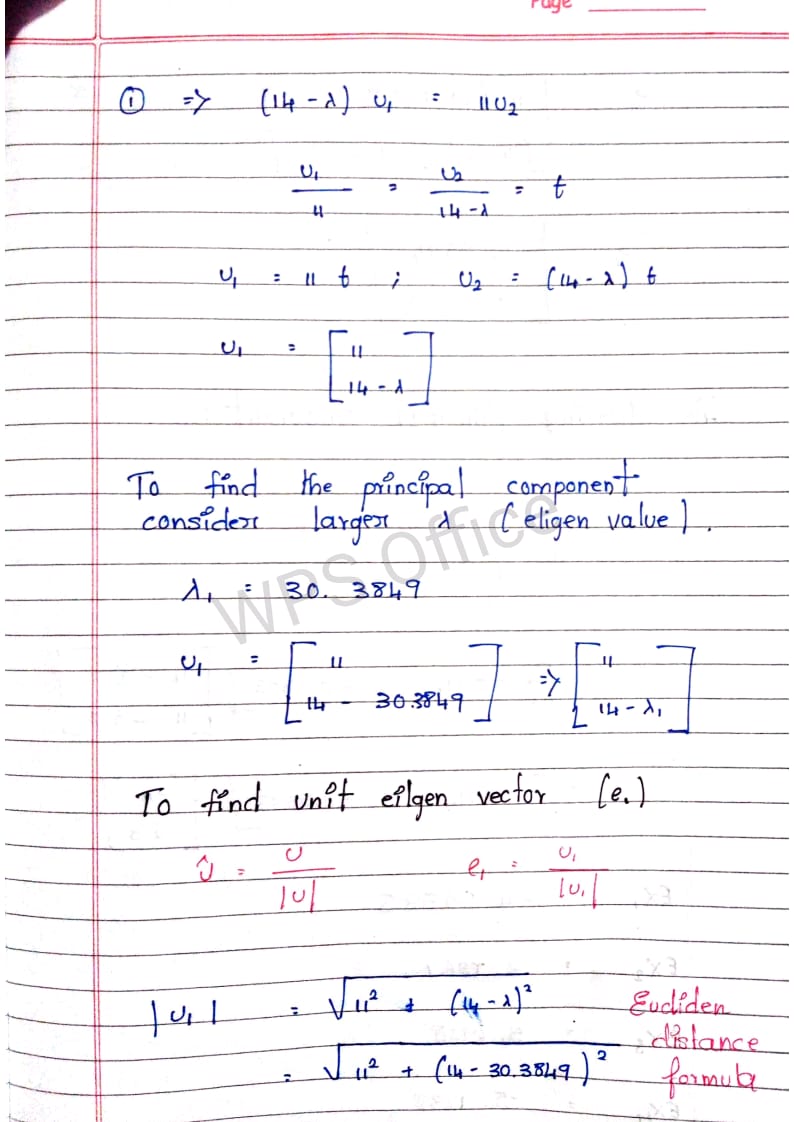 Page
① => (14 - λ) U₁ = 11U₂
U₁/11 = U₂/14-λ = t
U₁ = 11 t ; U₂ = (14 - λ) t
U₁ = [11
14 - λ]
To find the principal component
consider larger λ (eigen value).
λ₁ = 30.3849
U₁ = [11
14 - 30.3849] => [11
14 - λ₁]
To find unit eigen vector (e₁)
Û = U/|U| e₁ = U₁/|U₁|
|U₁| = √11² + (14 - λ)² Eucliden
distance
= √11² + (14 - 30.3849)² formula
WPS Office